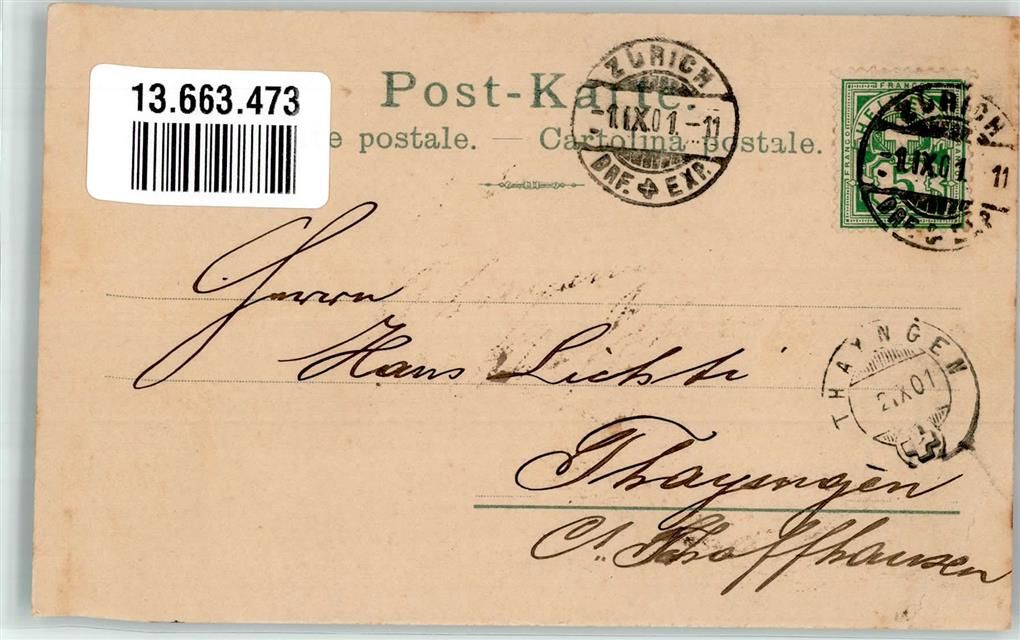 13.663.473
Post-Karte.
e postale. — Cartolina postale.
ZÜRICH
-1.IX.01.-11
BRF. EXP.
FRANCO
HEL
5
ZÜRICH
-1.IX.01 11
BRF. EXP.
Herrn
Hans Lichti
THAYNGEN
2.IX.01
Thayngen
Ct. Schaffhausen